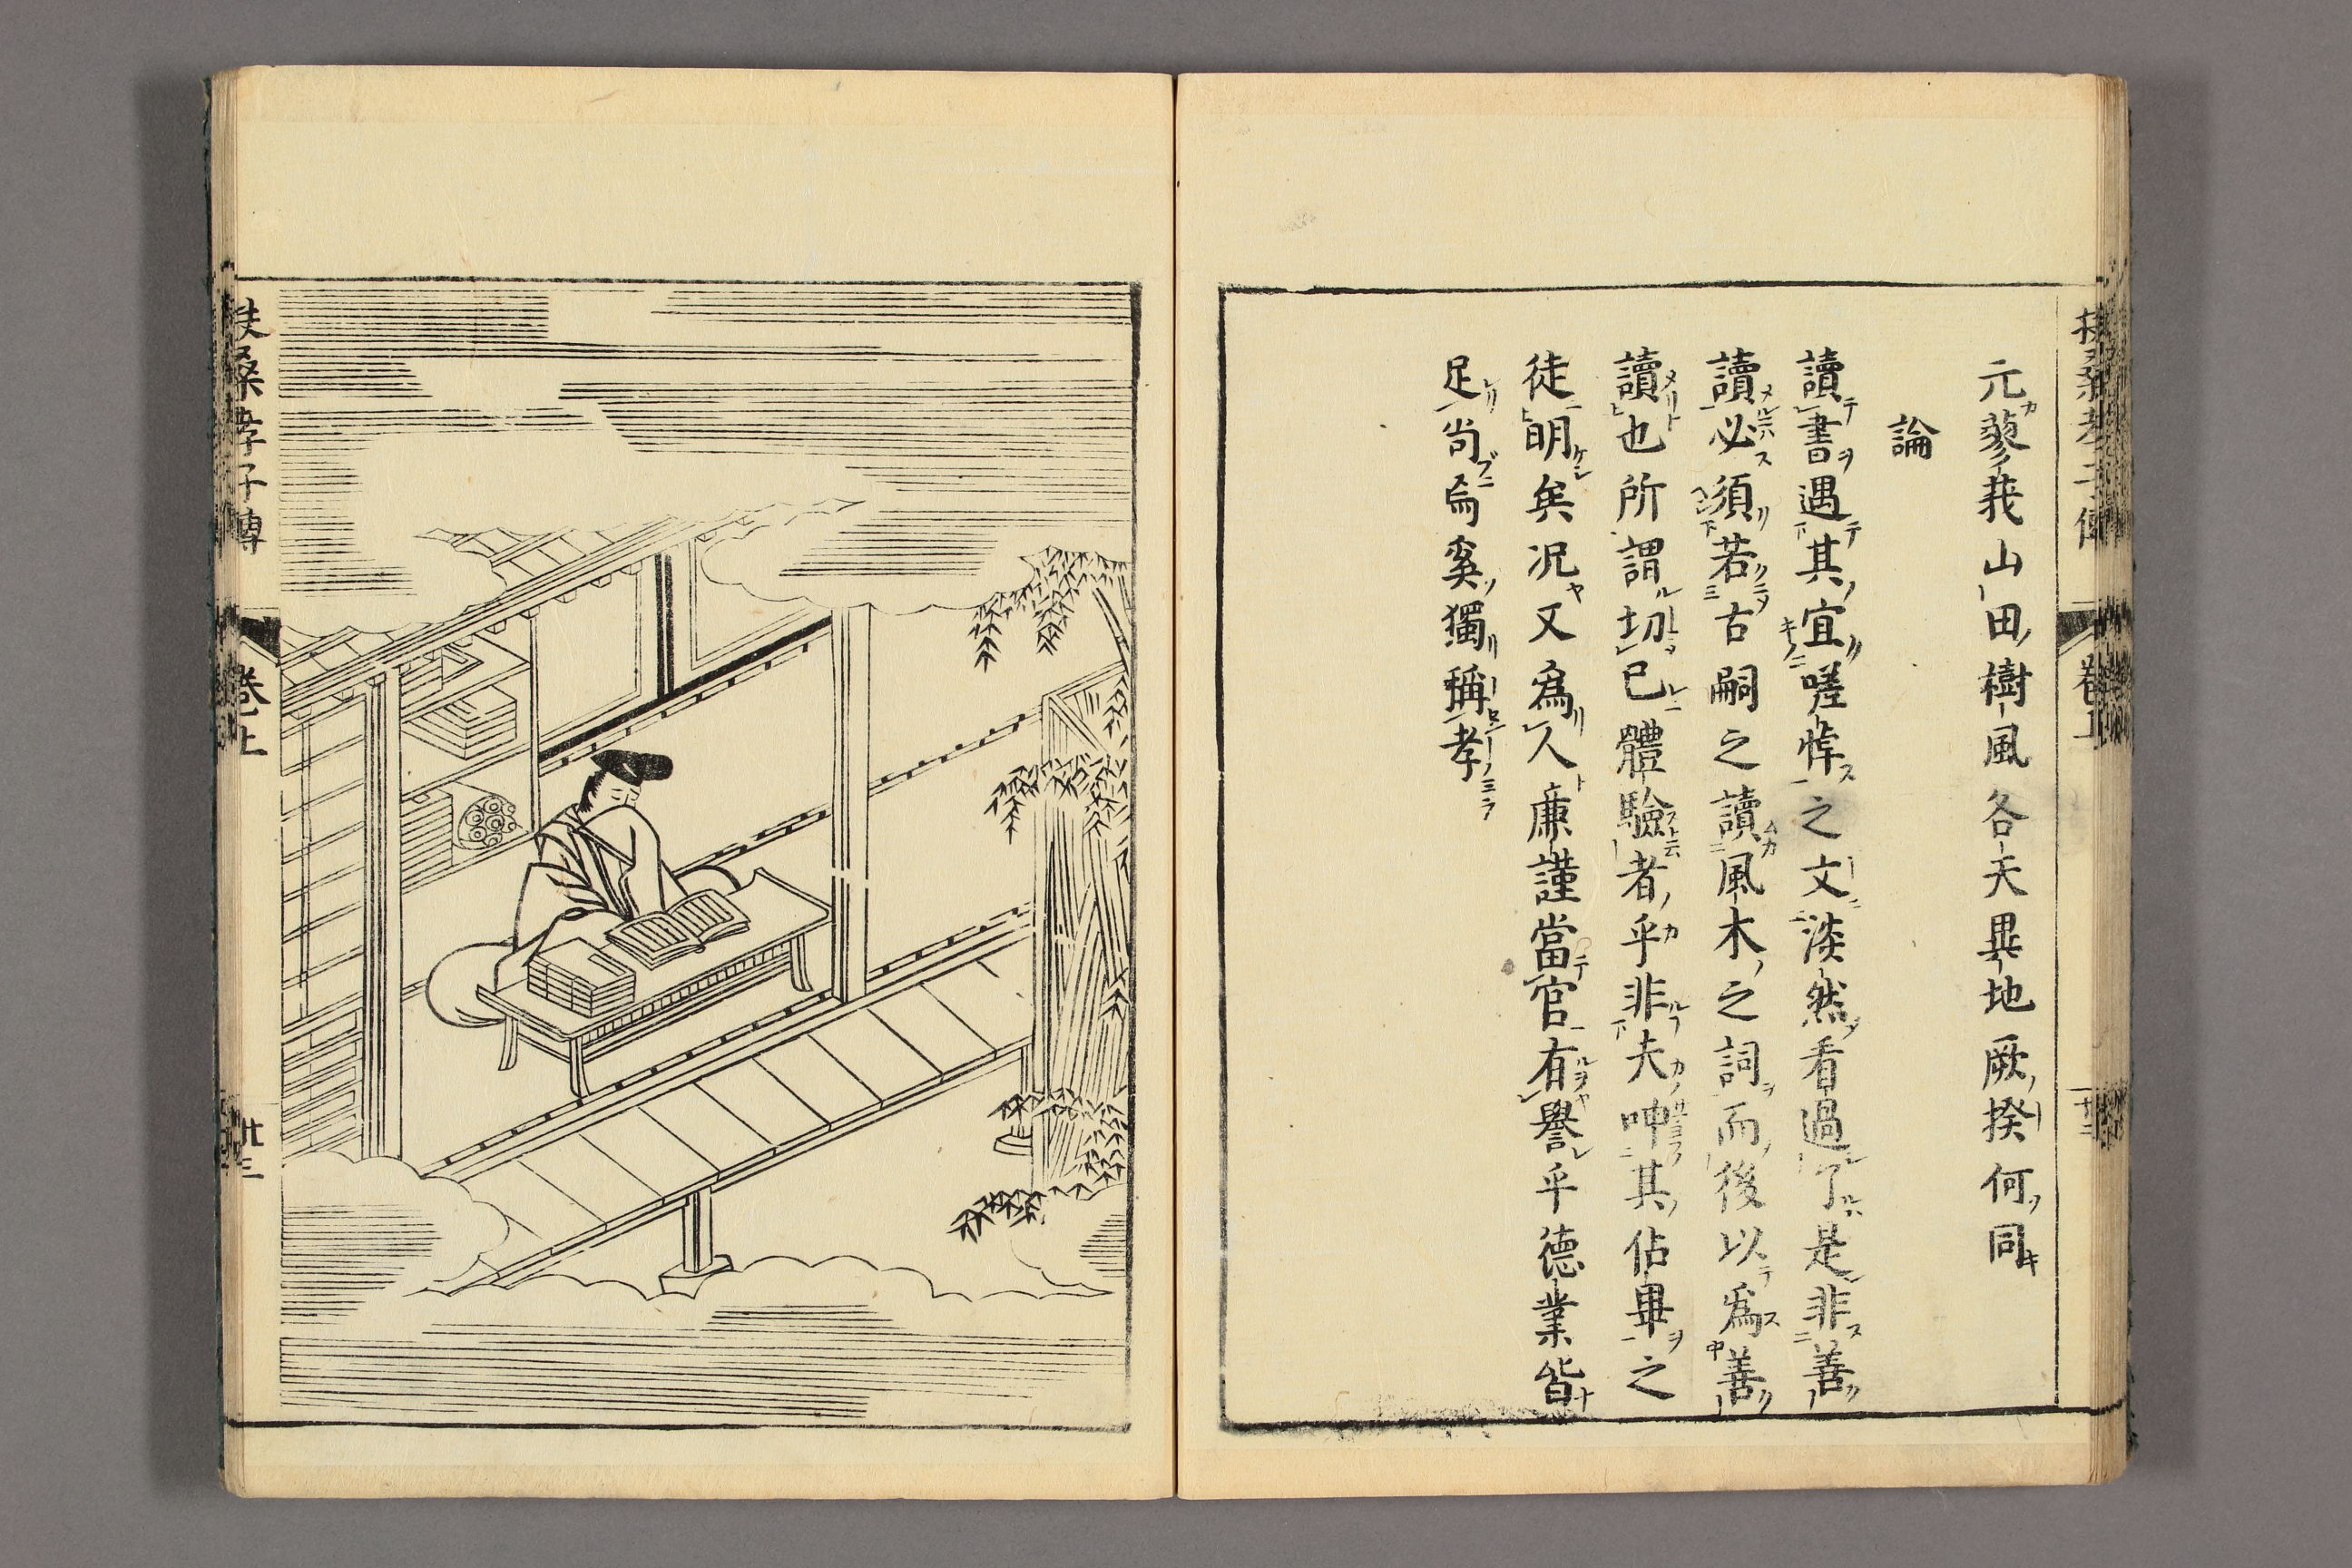 扶桑孝子傳
卷上
廿二
元蓼莪山田樹風各天異地厥揆何同
論
讀書遇其宜嗟悼之文淡然看過了是非善
讀必須若古嗣之讀風木之詞而後以爲善
讀也所謂切己體驗者乎非夫呻其佔畢之
徒明矣况又爲人廉謹當官有譽乎德業皆
足尚焉奚獨稱孝
扶桑孝子傳
卷上
廿三